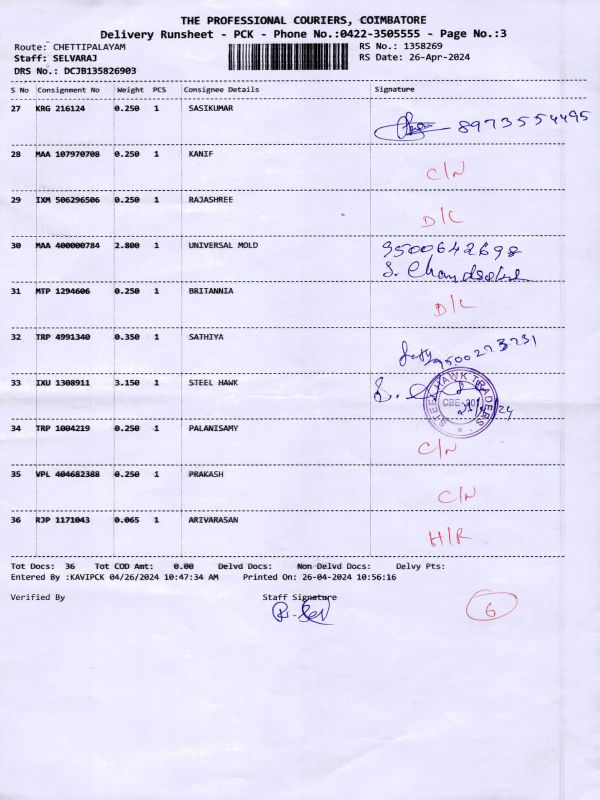 THE PROFESSIONAL COURIERS, COIMBATORE
Delivery Runsheet - PCK - Phone No.:0422-3505555 - Page No.:3
Route: CHETTIPALAYAM RS No.: 1358269
Staff: SELVARAJ RS Date: 26-Apr-2024
DRS No.: DCJB135826903
S No Consignment No Weight PCS Consignee Details Signature
27 KRG 216124 0.250 1 SASIKUMAR
8973554495
28 MAA 107970708 0.250 1 KANIF
C/N
29 IXM 506296506 0.250 1 RAJASHREE
D/L
30 MAA 400000784 2.800 1 UNIVERSAL MOLD 9500642698
S.
31 MTP 1294606 0.250 1 BRITANNIA
D/L
32 TRP 4991340 0.350 1 SATHIYA
9500273731
33 IXU 1308911 3.150 1 STEEL HAWK
STEEL HAWK TRADERS
34 TRP 1004219 0.250 1 PALANISAMY
C/N
35 VPL 404682388 0.250 1 PRAKASH
C/N
36 RJP 1171043 0.065 1 ARIVARASAN
H/R
Tot Docs: 36 Tot COD Amt: 0.00 Delvd Docs: Non Delvd Docs: Delvy Pts:
Entered By :KAVIPCK 04/26/2024 10:47:34 AM Printed On: 26-04-2024 10:56:16
Verified By Staff Signature
6